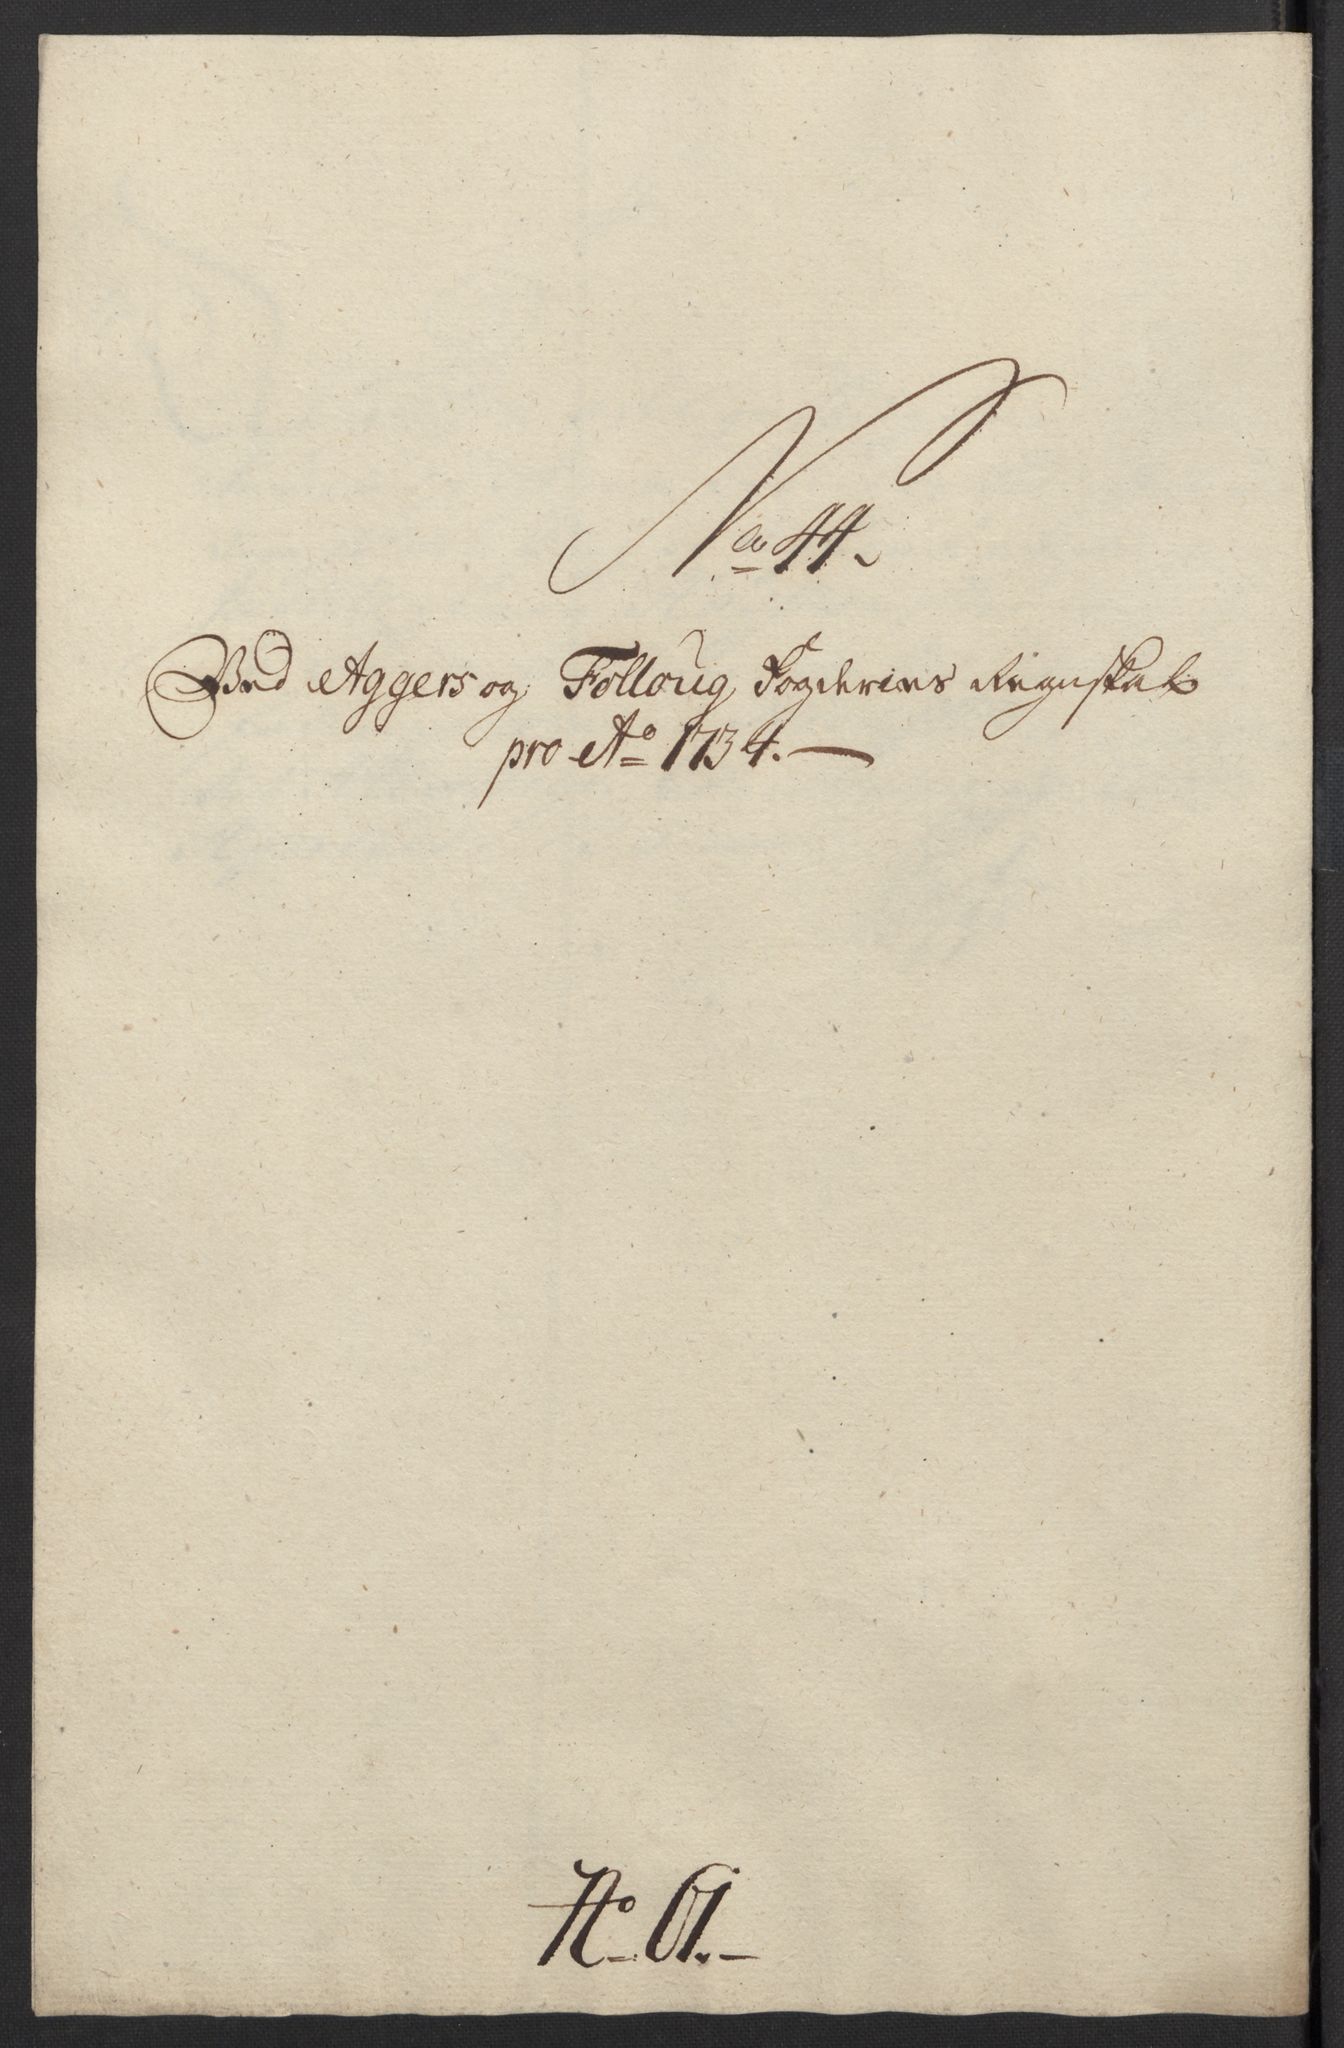 No 44.
Ved Aggers og Folloug Fogderies Regnskab
pro Ao 1734.
No 61.